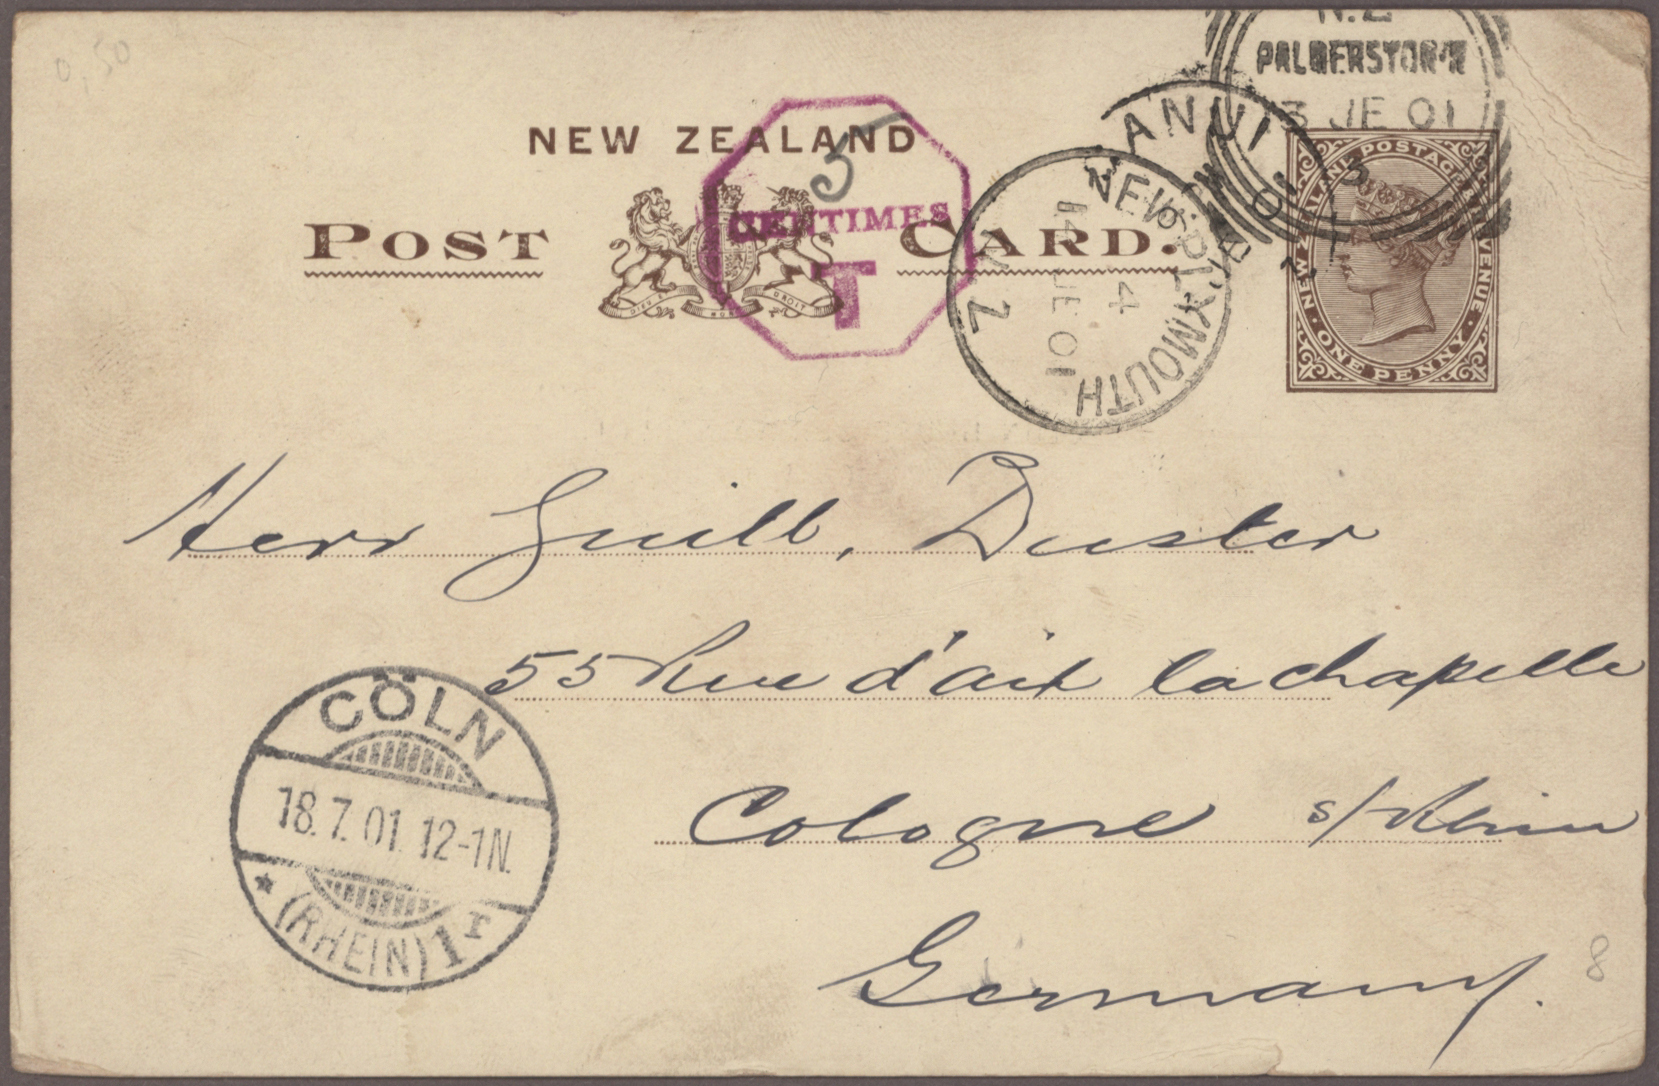 0,50
NEW ZEALAND
POST CARD.
DIEU E
MON
DROIT
5
CENTIMES
T
N.Z
PALMERSTON·N
3 JE 01
ANUI
JE 01
N.Z
NEW PLYMOUTH
4
14 JE 01
N.Z
NEW ZEALAND POSTAGE & REVENUE · ONE PENNY ·
Herr Guill, Duster
55 Rue d'aix la chapelle
Cologne s/Rhin
Germany.
CÖLN
18.7.01. 12-1N.
★ (RHEIN) 1r
8